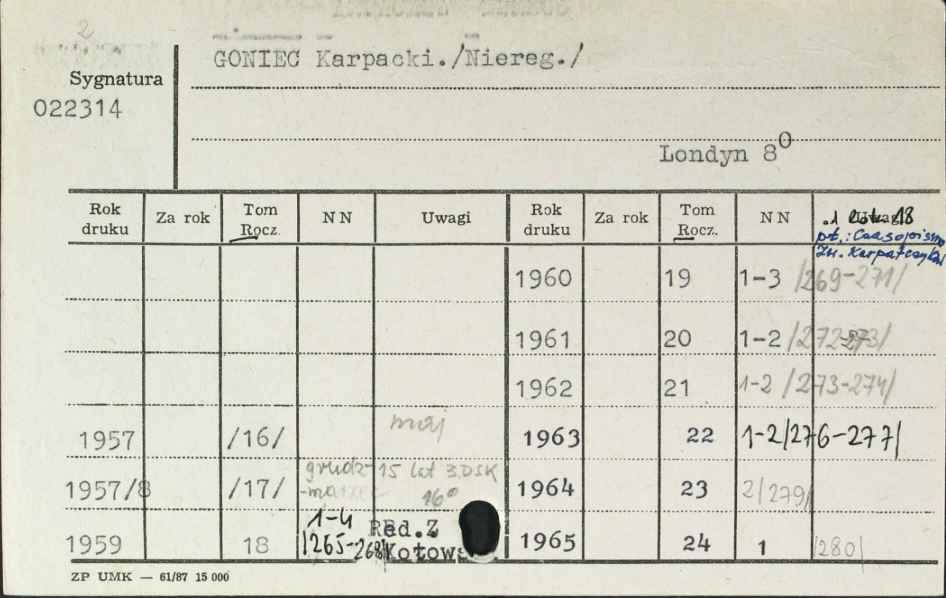 2
GONIEC Karpacki./Niereg./
Sygnatura
022314
Londyn 8⁰
Rok druku Za rok Tom Rocz. NN Uwagi Rok druku Za rok Tom Rocz. NN
pt.: Czasopismo
Zw. Karpatczyków
1960 19 1-3 /269-271/
1961 20 1-2 /272-273/
1962 21 1-2 /273-274/
1957 /16/ maj 1963 22 1-2/276-277/
1957/8 /17/ grudz-marzec 15 lat 3.DSK 16⁰ 1964 23 2/279/
1959 18 1-4 /265-268/ Red.Z 1965 24 1 /280/
ZP UMK — 61/87 15 000